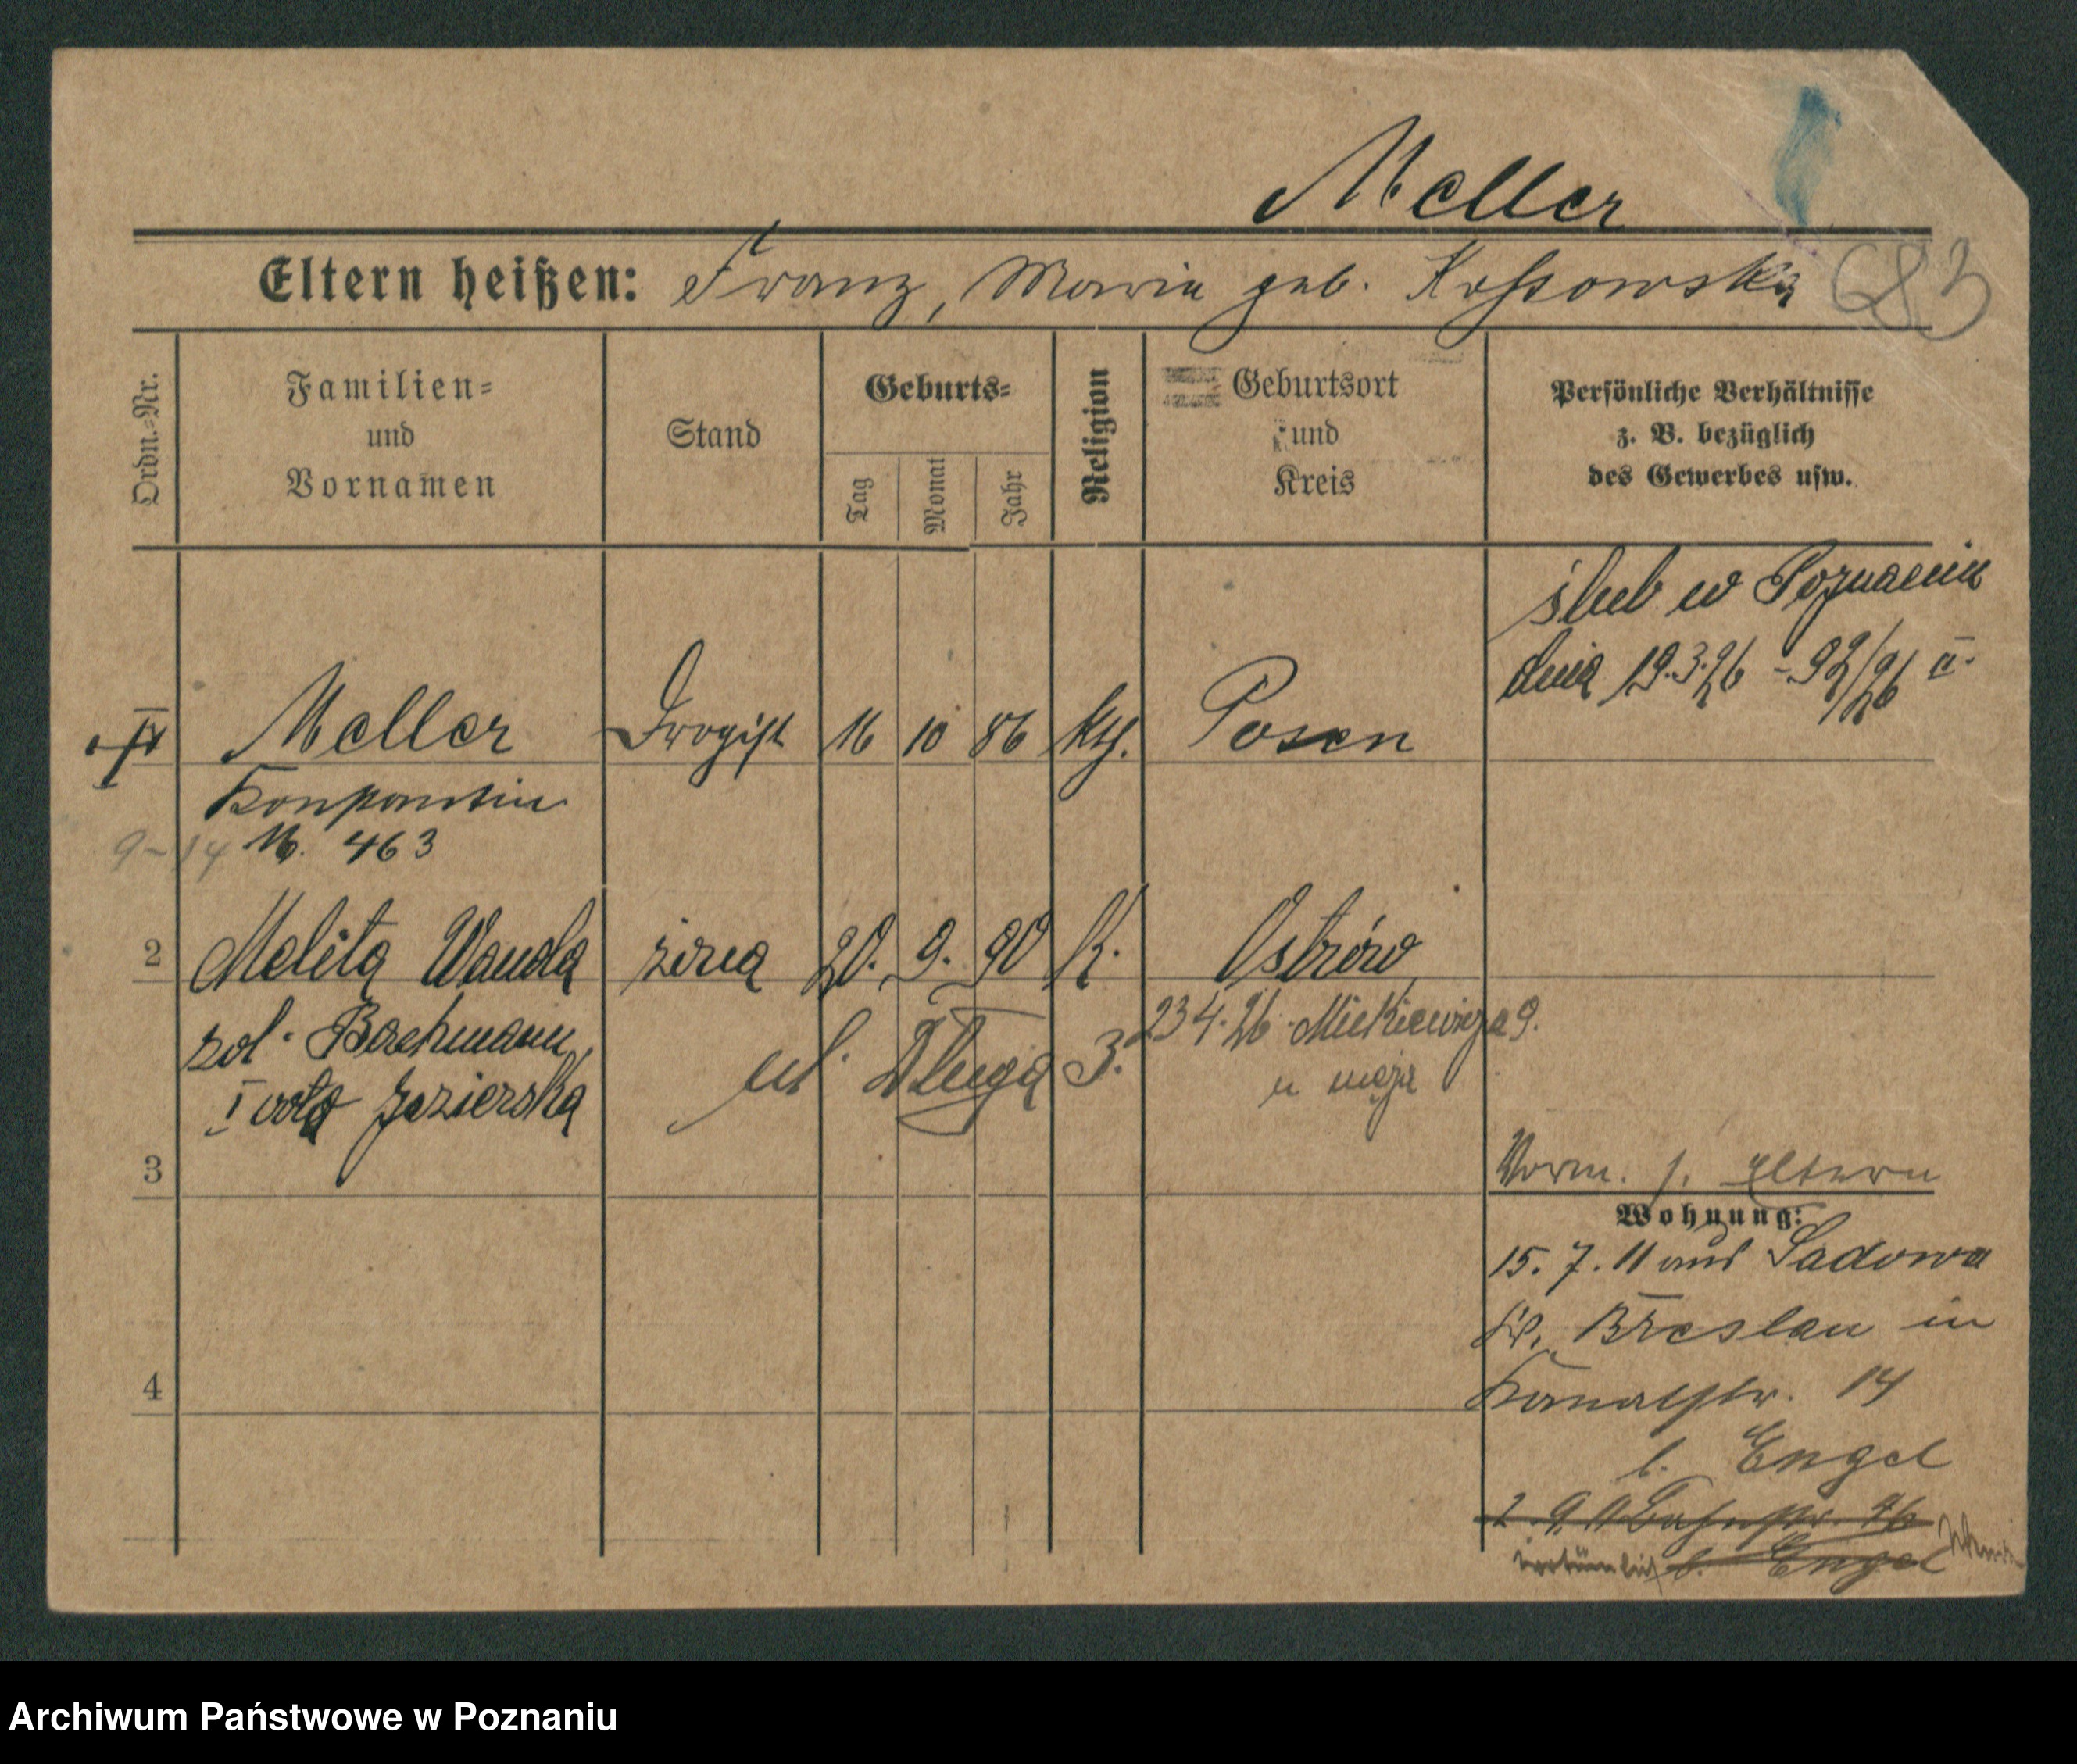 Meller
Eltern heißen: Franz, Maria geb. Kossowska 683
Ordn.-Nr.
Familien-
und
Vornamen
Stand
Geburts-
Tag
Monat
Jahr
Religion
Geburtsort
und
Kreis
Persönliche Verhältnisse
z. B. bezüglich
des Gewerbes usw.
ślub w Poznaniu
dnia 19.3.26 - 92/26 II.
Meller Drogist 16 10 86 kth. Posen
Konstantin
9-14 M. 463
2 Melita Wanda żona 20. 9. 90 K. Ostrów
zd. Bachmann
I voto Jezierska
ul. Długa 3.
23 4. 26 Mickiewicza 9.
u męża
3
Vorm. s. Eltern
Wohnung:
15. 7. 11 aus Sadowa
Kr. Breslau in
Kanalstr. 14
4
b. Engel
2. 9. 11 Bahnstr. 46
irrtümlich b. Engel
Archiwum Państwowe w Poznaniu